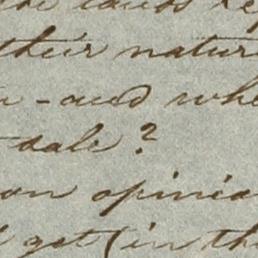 their natur
- and whe
sale?
on opinio
get (in th